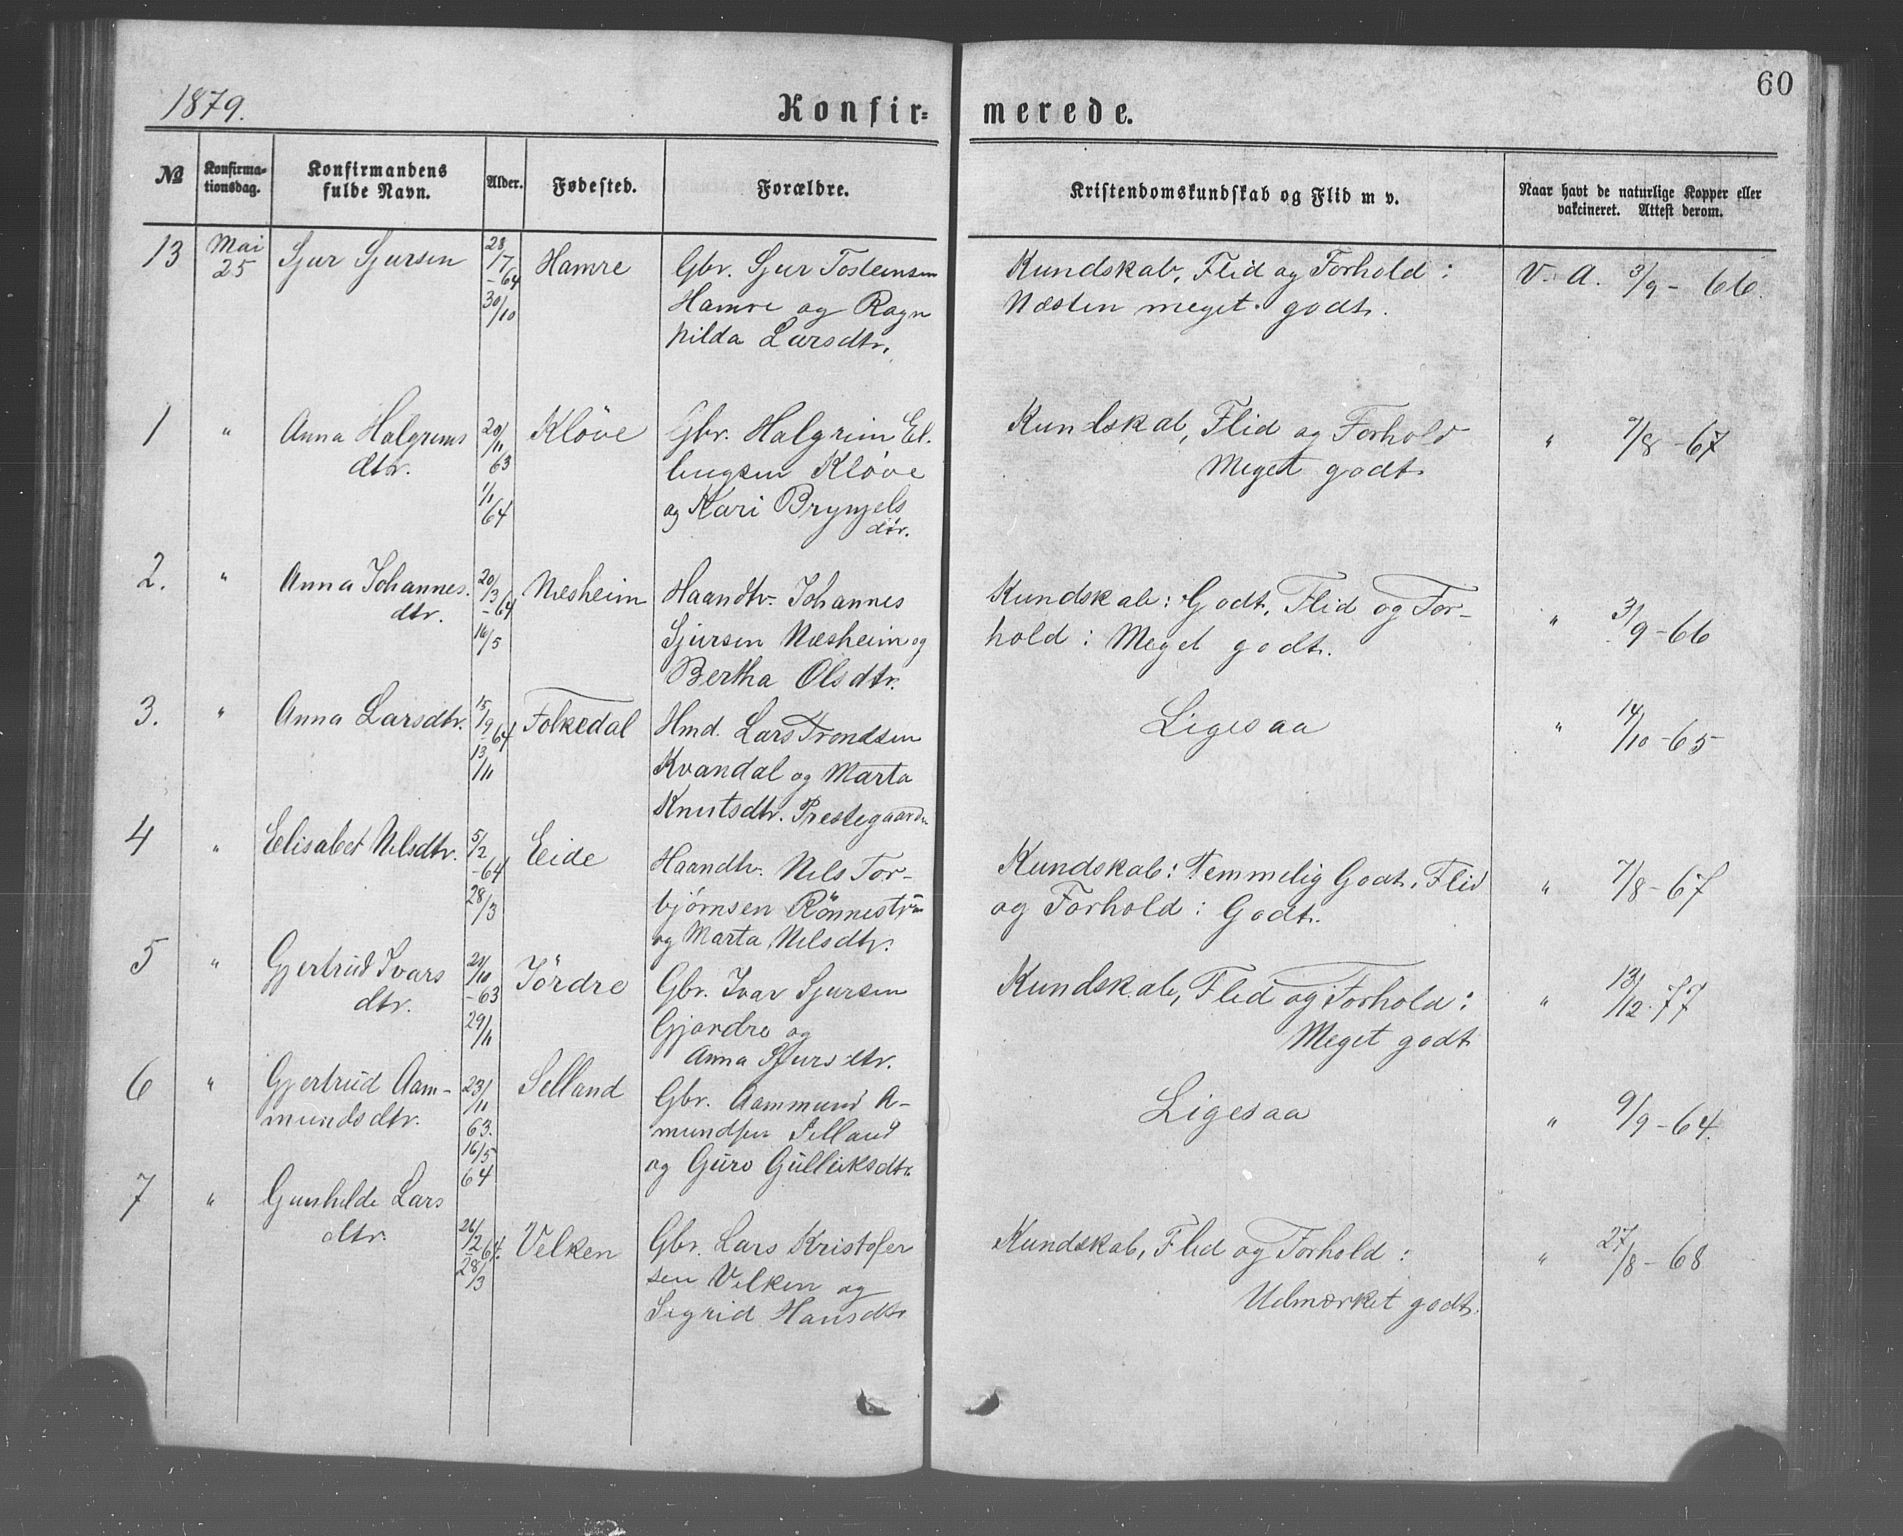 1879.
60
Konfir= merede.
№
Konfirma-
tionsdag.
Konfirmandens
fulde Navn.
Alder.
Fødested.
Forældre.
Kristendomskundskab og Flid m v.
Naar havt de naturlige Kopper eller
vakcineret. Attest derom.
13 Mai Sjur Sjursen 28/7 Hamre Gbr. Sjur Tosteinsen Kundskab, Flid og Forhold: V. A. 3/9 - 66.
25 -64 Hamre og Ragn Næsten meget godt.
30/10 hilda Larsdtr.
1 " Anna Halgrims 20/11 Kløve Gbr. Halgrim El. Kundskab, Flid og Forhold " 7/8 - 67
dtr. 63 lingsen Kløve Meget godt
1/1 og Kari Brynjels
64 dtr.
2. " Anna Johannes. 20/3 Næsheim Haandtv. Johannes Kundskab: Godt, Flid og For- " 3/9 - 66
dtr. -64 Sjursen Næsheim og hold: Meget godt.
16/5 Bertha Olsdtr.
3. " Anna Larsdtr. 15/9 Folkedal Hmd. Lars Trondsen Ligesaa " 14/10 - 65
64 Kvandal og Marta
13/11 Knutsdtr. Prestegaarden
4 " Elisabet Nilsdtr. 5/2 Eide Haandtv. Nils Tor- Kundskab: Temmelig Godt, Flid " 7/8 - 67
-64 bjørnsen Rönnestr og Forhold: Godt.
28/3 og Marta Nilsdtr.
5 " Gjertrud Ivars 24/10 Jördre Gbr. Ivar Sjursen Kundskab, Flid og Forhold: " 13/12 - 77
dtr. -63 Gjördre og Meget godt
29/11 Anna Sjursdtr.
6 " Gjertrud Aam- 23/11 Selland Gbr. Aammund A- Ligesaa " 9/9 - 64.
mundsdtr. 63. mundsen Selland
16/5 og Guro Gulleiksdtr
64
7 " Gunhilde Lars
dtr. 26/2 64. Velken Gbr. Lars Kristofer Kundskab, Flid og Forhold: " 27/8 - 68
28/3 sen Velken og Udmærket godt.
Sigrid Hansdtr